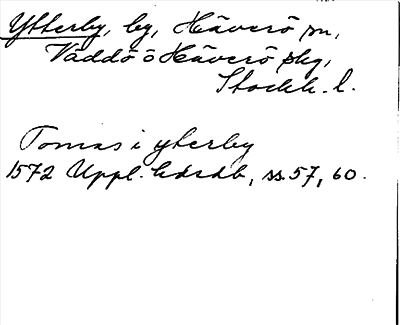 Ytterby, by, Häverö sn,
Väddö o Häverö skg,
Stockh. l.
Tomas i ytterby
1572 Uppl. hdrdb, ss. 57, 60.